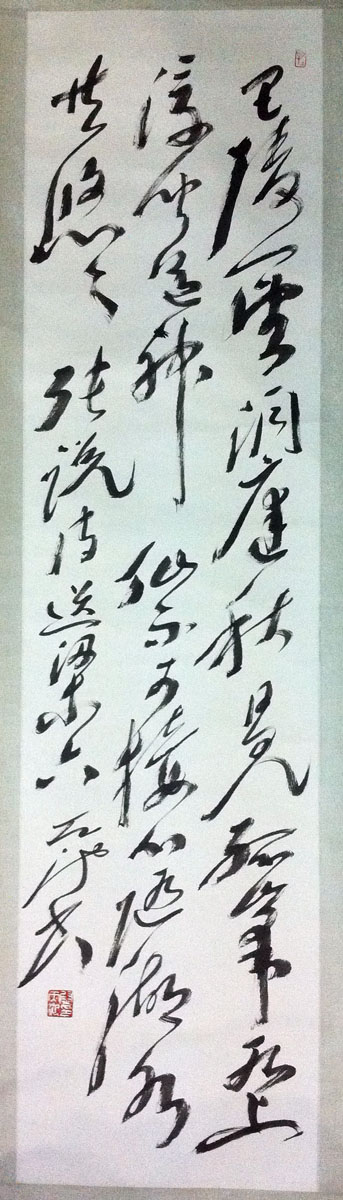 巴陵一望洞庭秋日見孤峯水上
浮闻道神仙不可接心随湖水
共悠々 张説诗送梁六